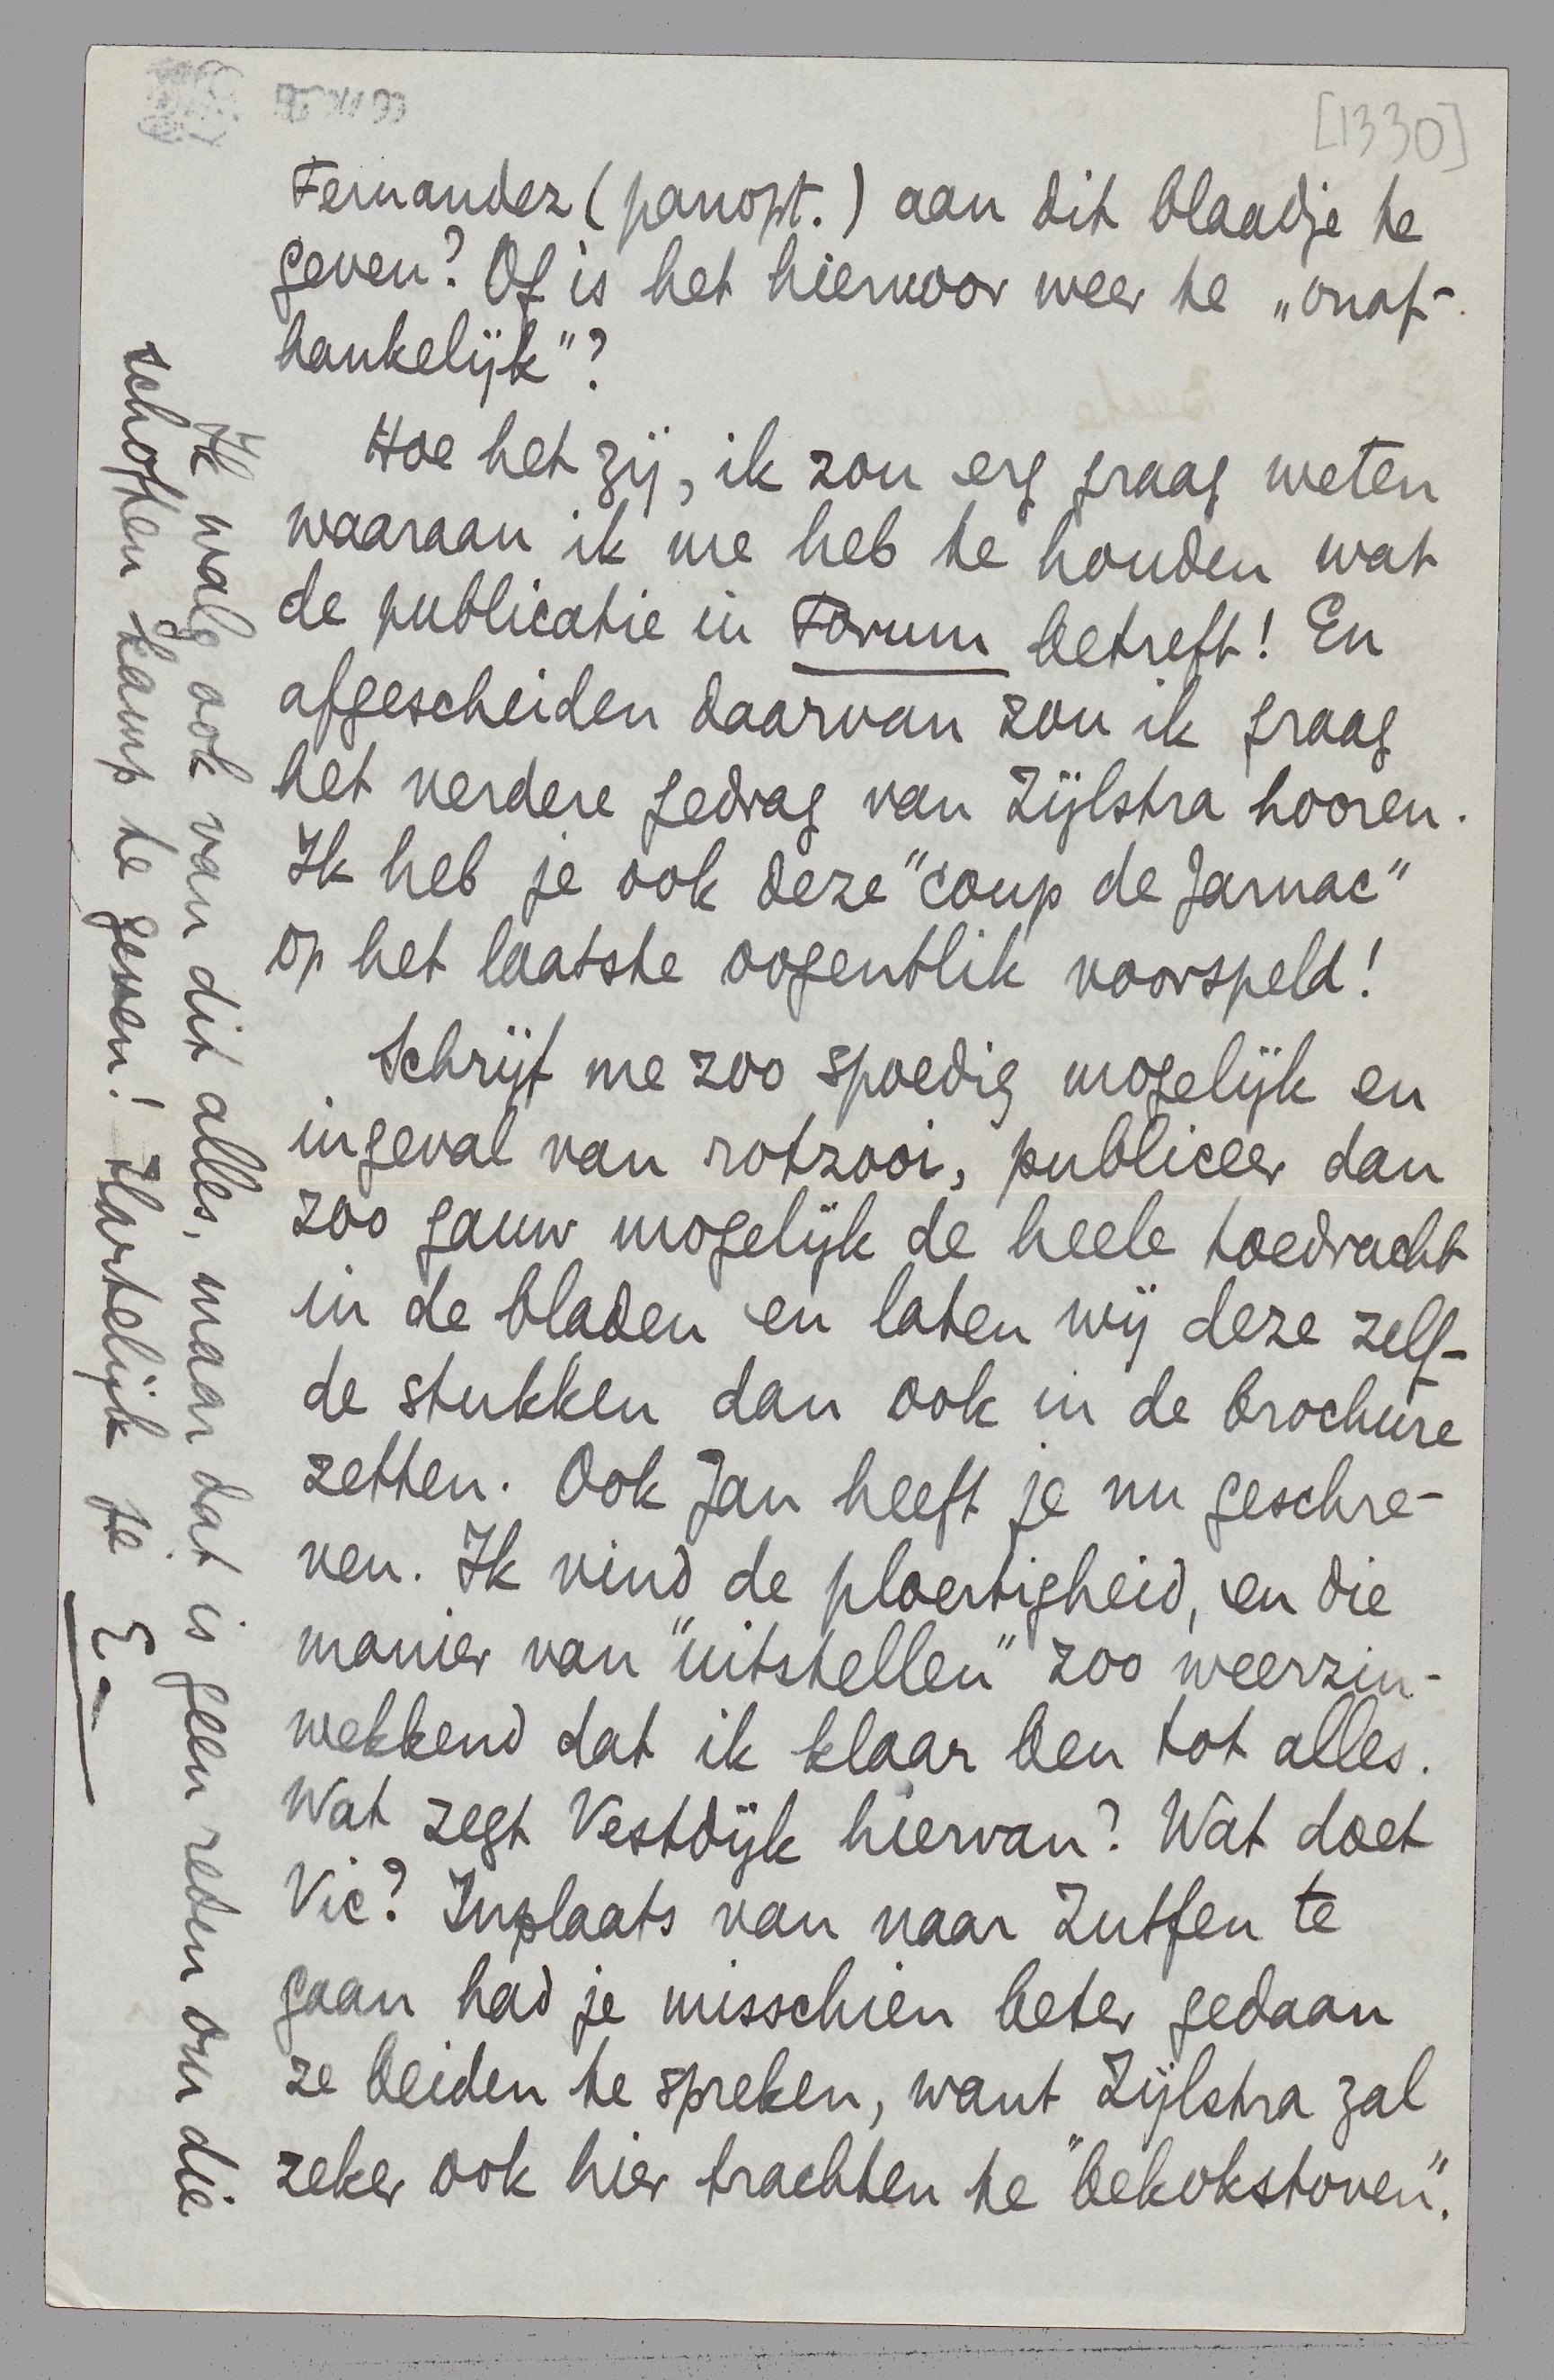 [1330]
Fernandez (panopt.) aan dit blaadje te
geven? Of is het hiervoor weer te „onaf-
hankelijk"?
Hoe het zij, ik zou erg graag weten
waaraan ik me heb te houden wat
de publicatie in Forum betreft! En
afgescheiden daarvan zou ik graag
het verdere gedrag van Zijlstra hooren.
Ik heb je ook deze "coup de Jarnac"
op het laatste oogenblik voorspeld!
Schrijf me zoo spoedig mogelijk en
ingeval van rotzooi, publiceer dan
zoo gauw mogelijk de heele toedracht
in de bladen en laten wij deze zelf-
de stukken dan ook in de brochure
zetten. Ook Jan heeft je nu geschre-
ven. Ik vind de ploertigheid, en die
manier van "uitstellen" zoo weerzin-
wekkend dat ik klaar ben tot alles.
Wat zegt Vestdijk hiervan? Wat doet
Vic? Inplaats van naar Zutfen te
gaan had je misschien beter gedaan
ze beiden te spreken, want Zijlstra zal
zeker ook hier trachten te "bekokstoven".
Ik walg ook van dit alles, maar dat is geen reden om die
schoften kamp te geven! Hartelijk je E.-